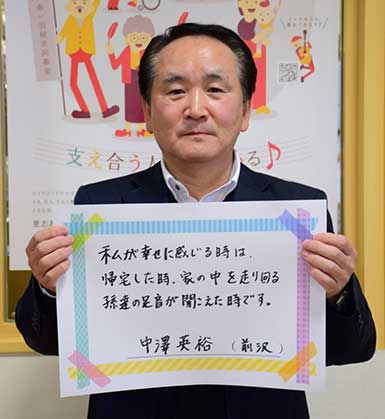 支え合う
る♪
私が幸せに感じる時は、
帰宅した時、家の中を走り回る
孫達の足音が聞こえた時です。
中澤英裕 (前沢)